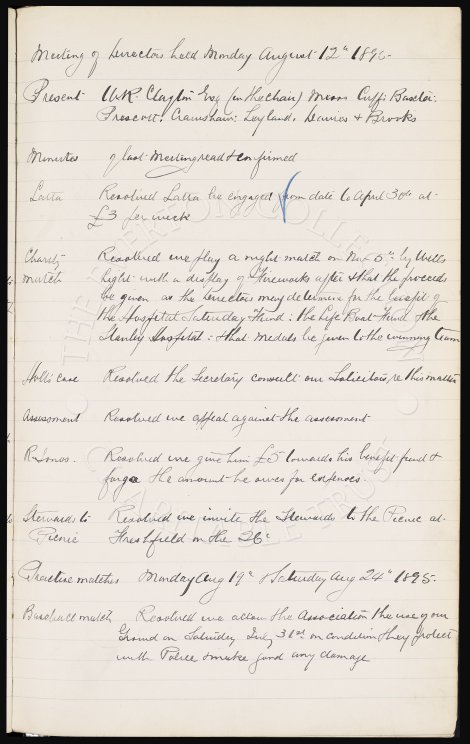 Meeting of Directors held Monday August 12th 1895
Present W.R. Clayton Esq (in the chair) Messrs Cuff: Baxter:
Prescott: Crawshaw: Leyland, Davies & Brooks
Minutes of last Meeting read & confirmed
Latta Resolved Latta be engaged from date to April 30th at
£3 per week
Charity Resolved we play a night match on Nov 5th by Wells
match light with a display of Fireworks after & that the proceeds
be given as the Directors may determine for the benefit of
the Hospital Saturday Fund: the Life Boat Fund & the
Stanley Hospital: & that medals be given to the winning team
Holts case Resolved the Secretary consult our Solicitors re this matter
Assessment Resolved we appeal against the assessment
R Jones. Resolved we give him £5 towards his benefit fund &
forgo the amount he owes for expenses
Stewards to Resolved we invite the Stewards to the Picnic at
Picnic Freshfield on the 26th
Practise matches Monday Aug 19th & Saturday Aug 24th 1895-
Baseball match Resolved we allow the Association the use of our
Ground on Saturday 31st on condition they protect
with Police & make good any damage
THE EVERTON COLLECTION
CHARITABLE TRUST